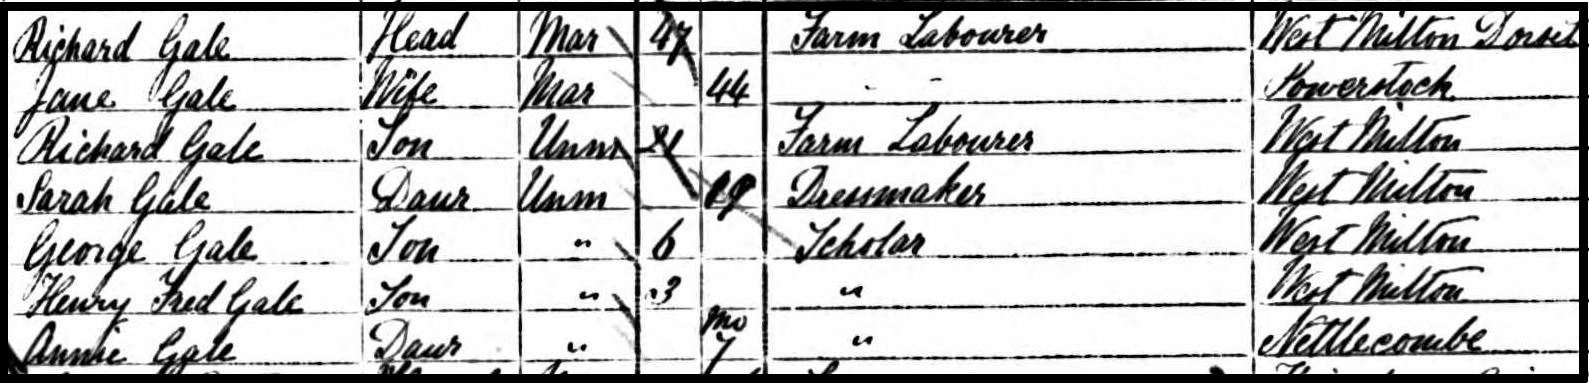 Richard Gale Head Mar 47 Farm Labourer West Milton Dorset
Jane Gale Wife Mar 44 Powerstock
Richard Gale Son Unm 21 Farm Labourer West Milton
Sarah Gale Daur Unm 19 Dressmaker West Milton
George Gale Son " 6 Scholar West Milton
Henry Fred Gale Son " 3 " West Milton
Annie Gale Daur " 7 mo " Nettlecombe